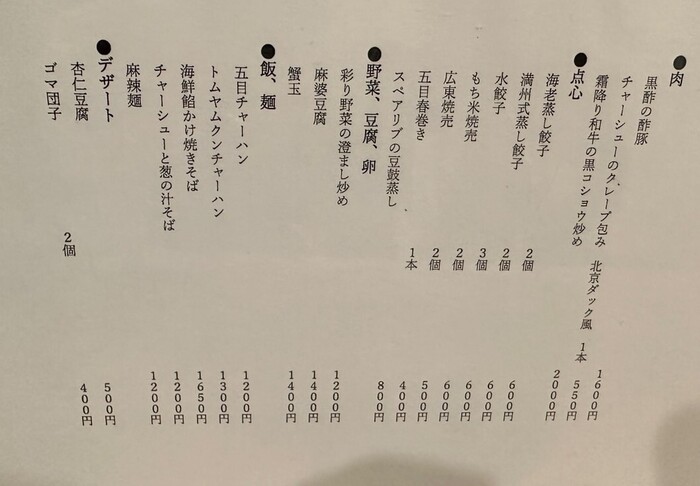 ●肉
黒酢の酢豚 1600円
チャーシューのクレープ包み 北京ダック風 1本 550円
霜降り和牛の黒コショウ炒め 2000円
●点心
海老蒸し餃子 2個 600円
満州式蒸し餃子 2個 600円
水餃子 3個 600円
もち米焼売 2個 600円
広東焼売 2個 500円
五目春巻き 1本 400円
スペアリブの豆鼓蒸し 800円
●野菜、豆腐、卵
彩り野菜の澄まし炒め 1200円
麻婆豆腐 1400円
蟹玉 1400円
●飯、麺
五目チャーハン 1200円
トムヤムクンチャーハン 1300円
海鮮餡かけ焼きそば 1650円
チャーシューと葱の汁そば 1200円
麻辣麺 1200円
●デザート
杏仁豆腐 500円
ゴマ団子 2個 400円